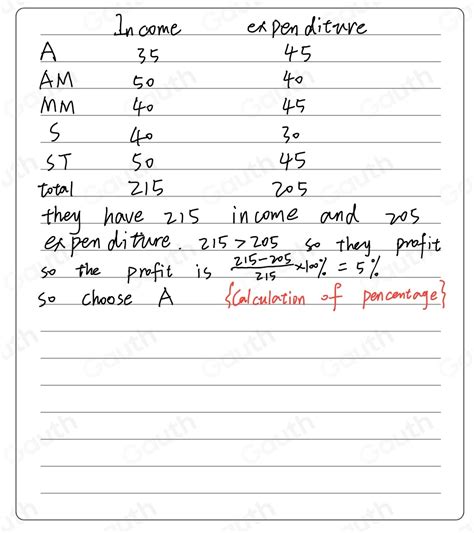 Income expenditure
A 35 45
AM 50 40
MM 40 45
S 40 30
ST 50 45
total 215 205
they have 215 income and 205
expenditure. 215>205 so they profit
so the profit is (215-205)/215 ×100% = 5%
so choose A {Calculation of pencentage}
Gauth